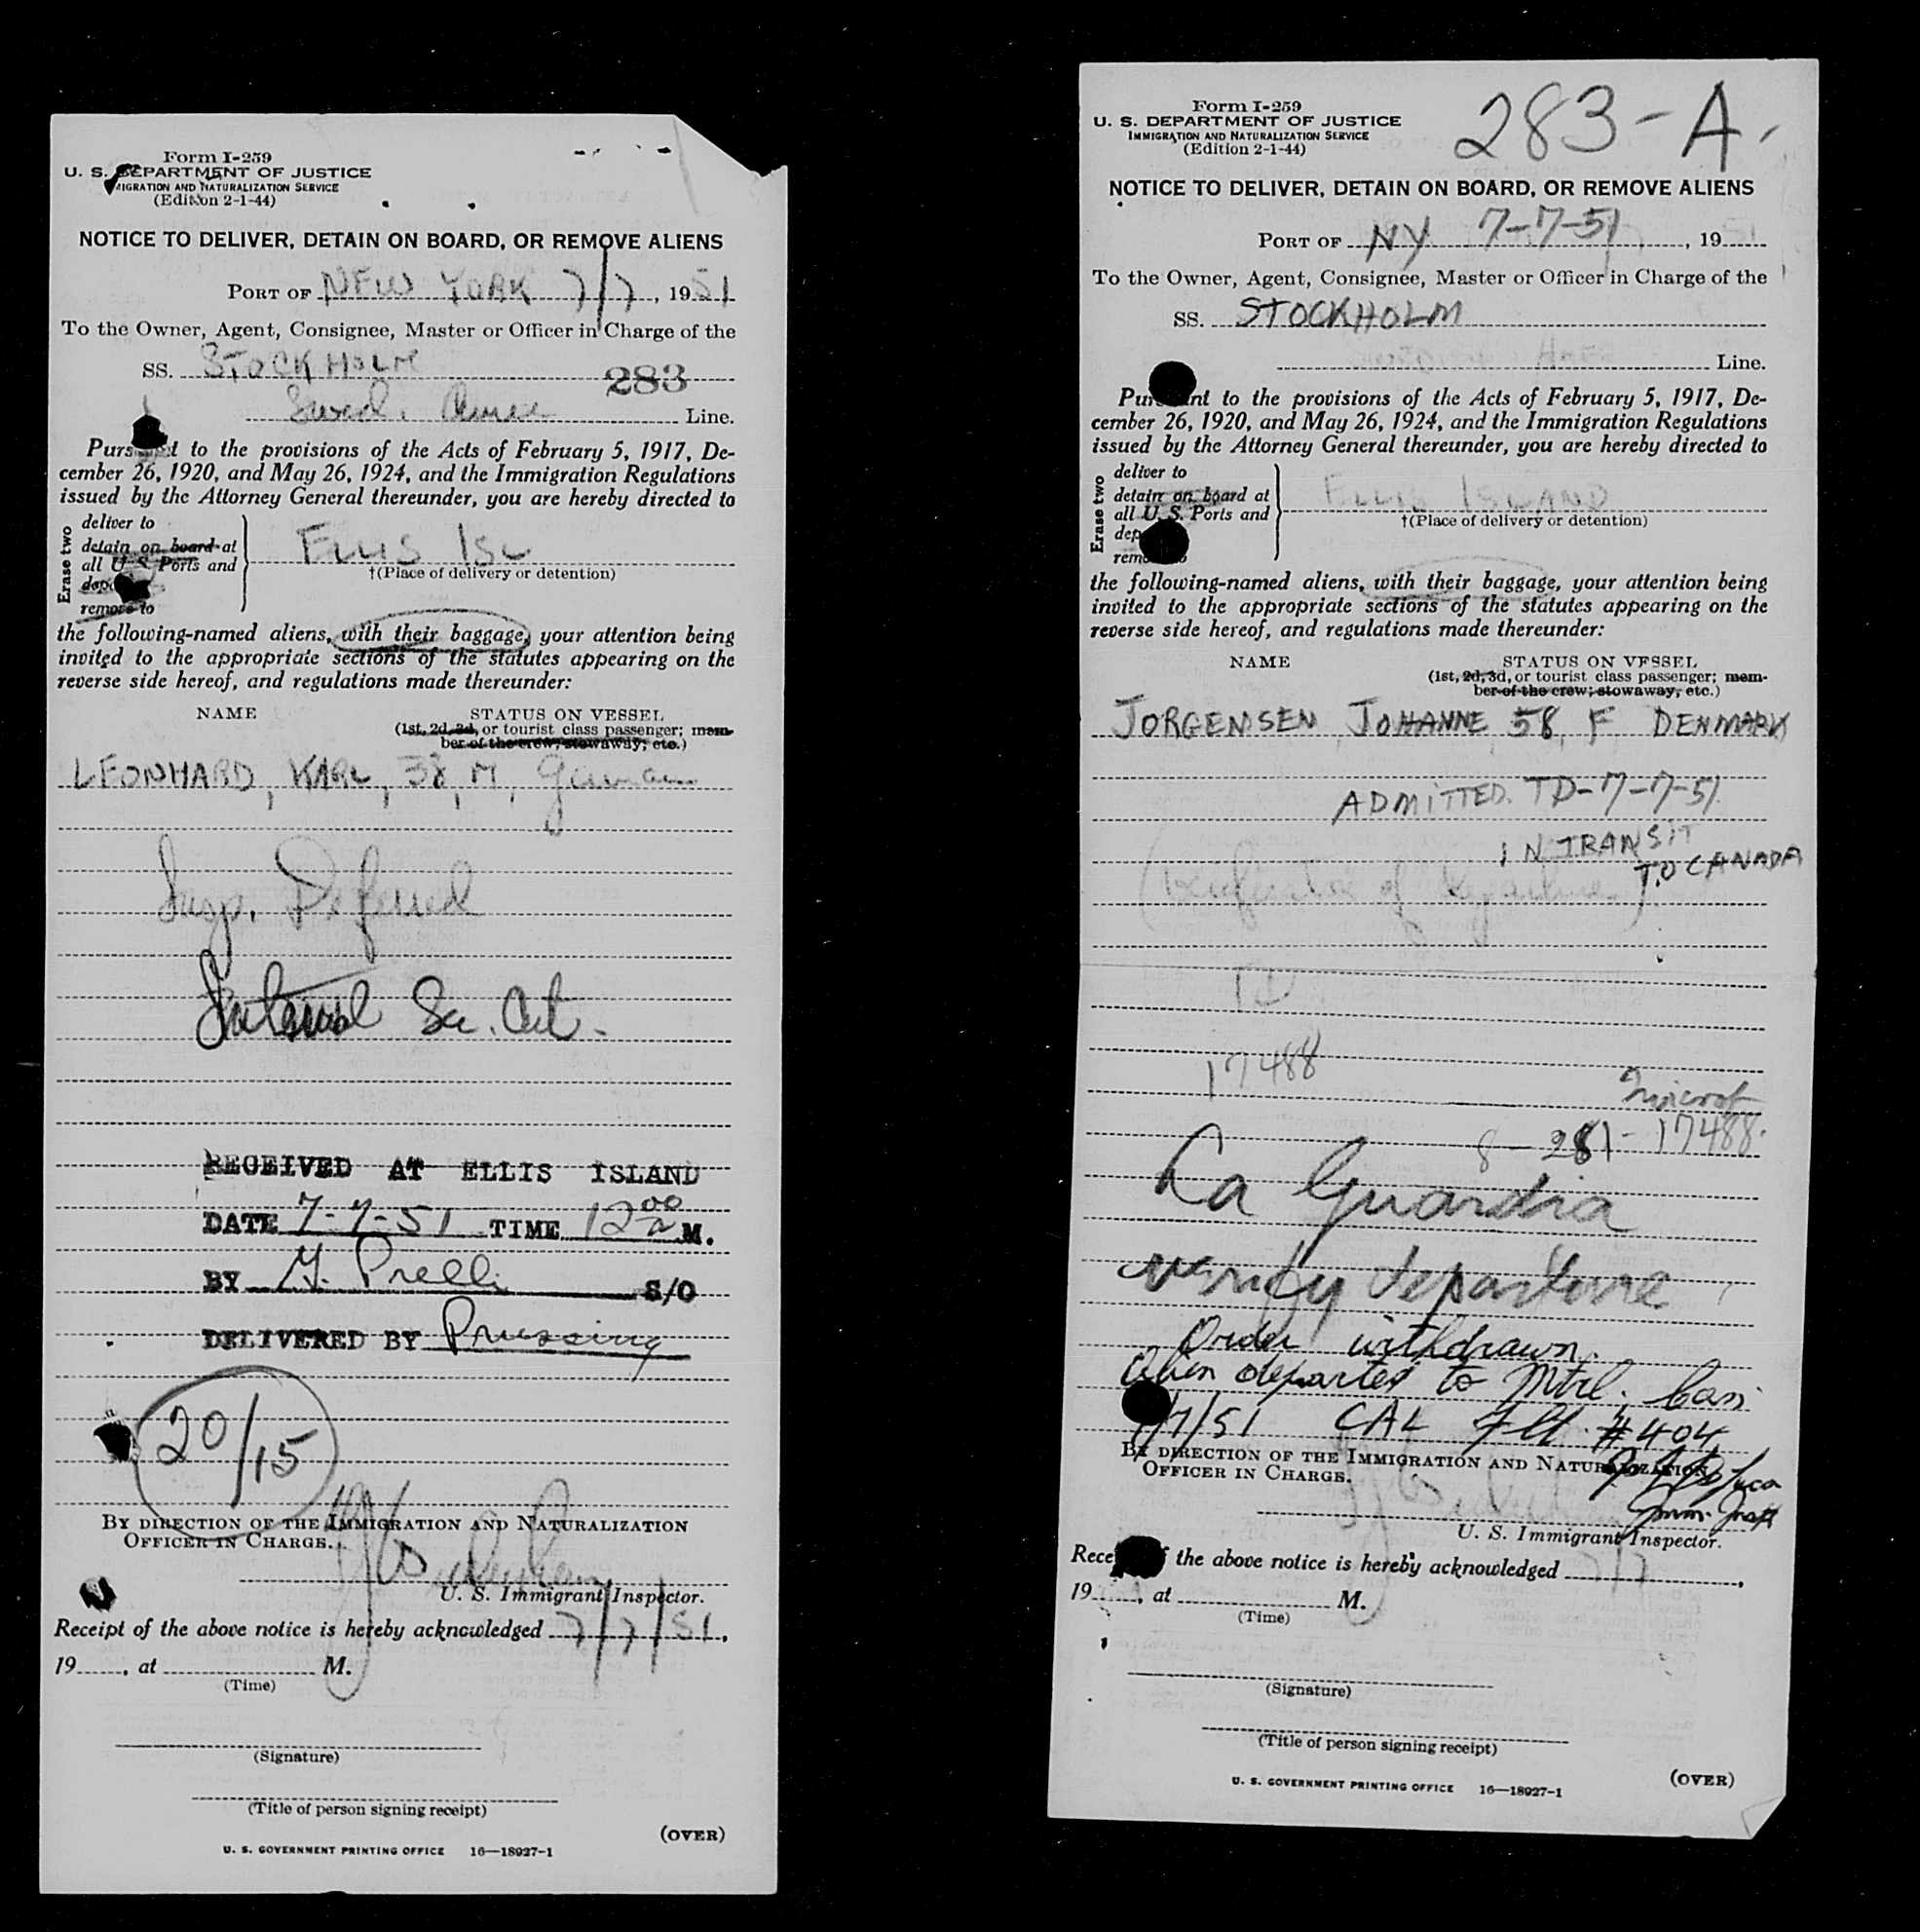 Form I-259
U. S. DEPARTMENT OF JUSTICE
MIGRATION AND NATURALIZATION SERVICE
(Edition 2-1-44)
NOTICE TO DELIVER, DETAIN ON BOARD, OR REMOVE ALIENS
PORT OF NEW YORK 7/7, 1951
To the Owner, Agent, Consignee, Master or Officer in Charge of the
SS. STOCKHOLM 283
Swed. Amer Line.
Pursuant to the provisions of the Acts of February 5, 1917, De-
cember 26, 1920, and May 26, 1924, and the Immigration Regulations
issued by the Attorney General thereunder, you are hereby directed to
Erase two
deliver to
detain on board at
all U. S. Ports and
remove to
ELLIS ISL
†(Place of delivery or detention)
the following-named aliens, with their baggage, your attention being
invited to the appropriate sections of the statutes appearing on the
reverse side hereof, and regulations made thereunder:
NAME STATUS ON VESSEL
(1st, 2d, 3d, or tourist class passenger; mem-
ber of the crew; stowaway; etc.)
LEONHARD, KARL, 38, M, German
Insp. Deferred
Internal Sec. Act.
RECEIVED AT ELLIS ISLAND
DATE 7-7-51 TIME 12 00 M.
BY Prelli S/O
DELIVERED BY Prussing
20/15
BY DIRECTION OF THE IMMIGRATION AND NATURALIZATION
OFFICER IN CHARGE.
U. S. Immigrant Inspector.
Receipt of the above notice is hereby acknowledged 7/7/51,
19, at M.
(Time)
(Signature)
(Title of person signing receipt)
(OVER)
U. S. GOVERNMENT PRINTING OFFICE 16—18927-1
Form I-259
U. S. DEPARTMENT OF JUSTICE
IMMIGRATION AND NATURALIZATION SERVICE
(Edition 2-1-44)
283-A.
NOTICE TO DELIVER, DETAIN ON BOARD, OR REMOVE ALIENS
PORT OF NY 7-7-51, 1951
To the Owner, Agent, Consignee, Master or Officer in Charge of the
SS. STOCKHOLM
Line.
Pursuant to the provisions of the Acts of February 5, 1917, De-
cember 26, 1920, and May 26, 1924, and the Immigration Regulations
issued by the Attorney General thereunder, you are hereby directed to
Erase two
deliver to
detain on board at
all U. S. Ports and
ELLIS ISLAND
†(Place of delivery or detention)
the following-named aliens, with their baggage, your attention being
invited to the appropriate sections of the statutes appearing on the
reverse side hereof, and regulations made thereunder:
NAME STATUS ON VESSEL
(1st, 2d, 3d, or tourist class passenger; mem-
ber of the crew; stowaway, etc.)
JORGENSEN, JOHANNE, 58, F DENMARK
ADMITTED. TD-7-7-51.
IN TRANSIT
TO CANADA
(Verification of departure)
TD
17488
8-281-17488.
La Guardia
verify departure
Order withdrawn.
Alien departed to Mtrl. Can
7/7/51 CAL Flt. #404
BY DIRECTION OF THE IMMIGRATION AND NATURALIZATION
OFFICER IN CHARGE.
Imm. Insp
U. S. Immigrant Inspector.
Receipt of the above notice is hereby acknowledged 7/7,
19, at M.
(Time)
(Signature)
(Title of person signing receipt)
(OVER)
U. S. GOVERNMENT PRINTING OFFICE 16—18927-1